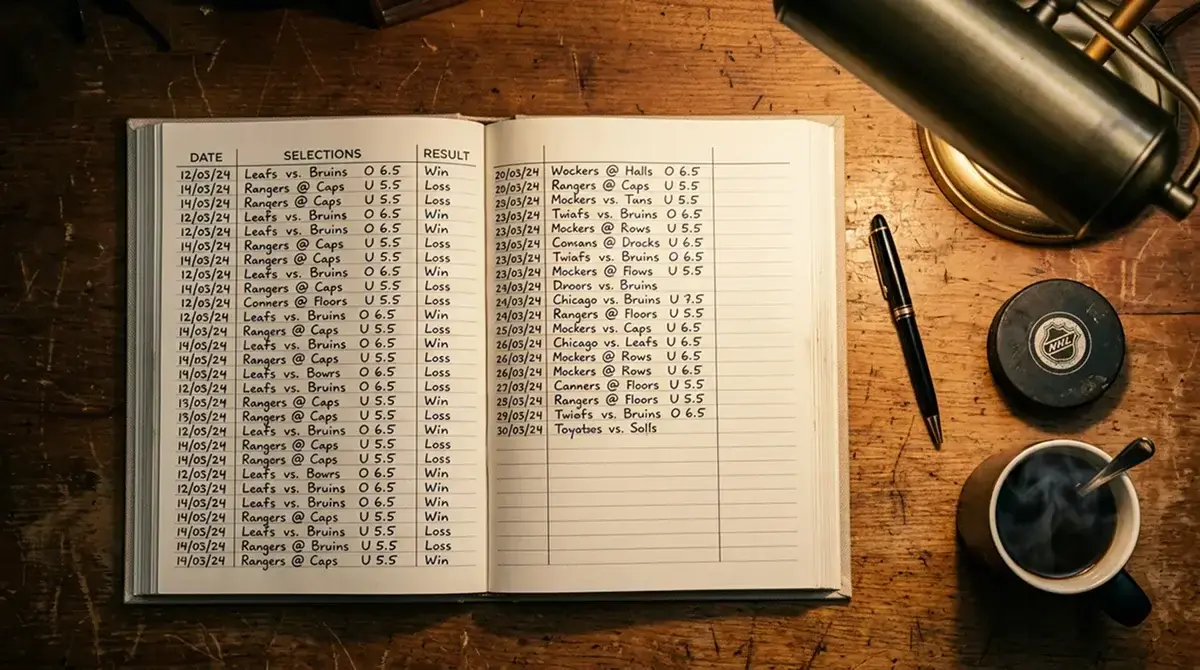 DATE SELECTIONS RESULT
12/03/24 Leafs vs. Bruins O 6.5 Win
14/03/24 Rangers @ Caps U 5.5 Loss
14/03/24 Rangers @ Caps U 5.5 Loss
12/03/24 Leafs vs. Bruins O 6.5 Win
12/03/24 Leafs vs. Bruins O 6.5 Win
14/03/24 Rangers @ Caps U 5.5 Loss
14/03/24 Rangers @ Caps U 5.5 Loss
12/03/24 Leafs vs. Bruins O 6.5 Win
14/03/24 Rangers @ Caps U 5.5 Loss
12/03/24 Conners @ Floors U 5.5 Loss
12/03/24 Leafs vs. Bruins O 6.5 Win
14/03/24 Rangers @ Caps U 5.5 Loss
14/05/24 Leafs vs. Bruins O 6.5 Win
14/05/24 Rangers @ Caps U 5.5 Loss
14/05/24 Leafs vs. Bowrs O 6.5 Loss
12/05/24 Leafs vs. Bruins U 6.5 Loss
13/05/24 Rangers @ Caps U 5.5 Win
13/05/24 Rangers @ Caps U 5.5 Loss
12/03/24 Leafs vs. Bruins O 6.5 Win
14/05/24 Rangers @ Caps U 5.5 Loss
14/05/24 Rangers @ Caps U 5.5 Loss
12/05/24 Leafs vs. Bowrs O 6.5 Win
12/05/24 Leafs vs. Bruins O 6.5 Win
14/05/24 Leafs vs. Bruins O 6.5 Win
14/05/24 Rangers @ Caps U 5.5 Win
14/05/24 Leafs vs. Bruins U 5.5 Loss
14/05/24 Rangers @ Bruins U 5.5 Loss
14/03/24 Rangers @ Caps U 5.5 Win
20/03/24 Wockers @ Halls O 6.5
20/03/24 Rangers @ Caps U 5.5
29/03/24 Mockers vs. Tans U 5.5
23/03/24 Twiafs vs. Bruins O 6.5
23/03/24 Mockers @ Rows U 5.5
23/03/24 Comans @ Drocks U 6.5
23/03/24 Twiafs vs. Bruins O 6.5
23/03/24 Mockers @ Flows U 5.5
24/03/24 Droors vs. Bruins
24/03/24 Chicago vs. Bruins U 7.5
24/03/24 Rangers @ Floors U 5.5
25/03/24 Mockers vs. Caps U 6.5
26/05/24 Chicago vs. Leafs U 6.5
26/03/24 Mockers @ Rows U 6.5
26/03/24 Mockers @ Rows U 6.5
27/03/24 Canners @ Floors U 5.5
28/03/24 Rangers @ Floors U 5.5
29/03/24 Twiofs vs. Bruins O 6.5
30/03/24 Toyotses vs. Solls
NHL